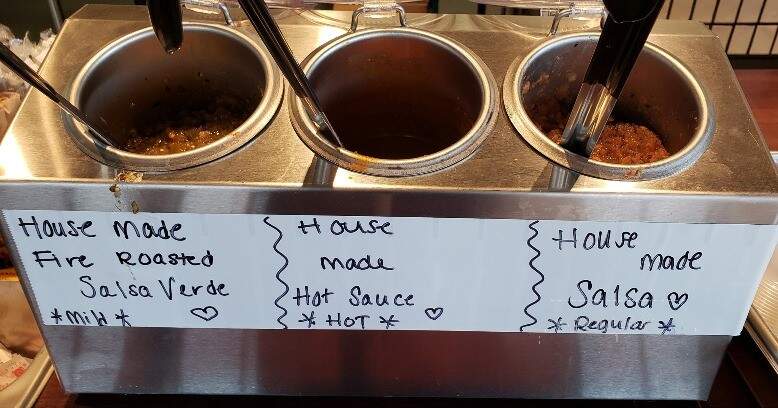 House made
Fire Roasted
Salsa Verde
*Mild* ♡
House
made
Hot Sauce
* HOT * ♡
House
made
Salsa ♡
* Regular *